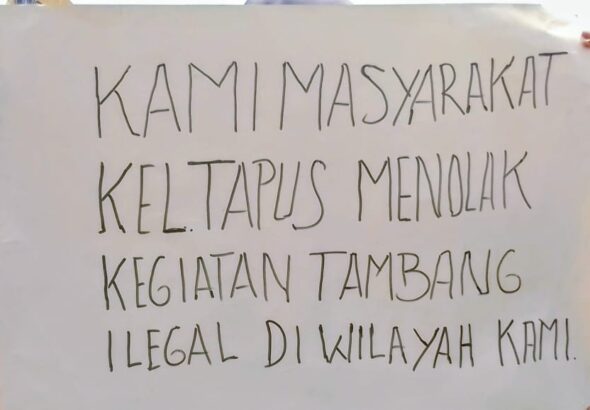 KAMI MASYARAKAT
KEL.TAPUS MENOLAK
KEGIATAN TAMBANG
ILEGAL DI WILAYAH KAMI.